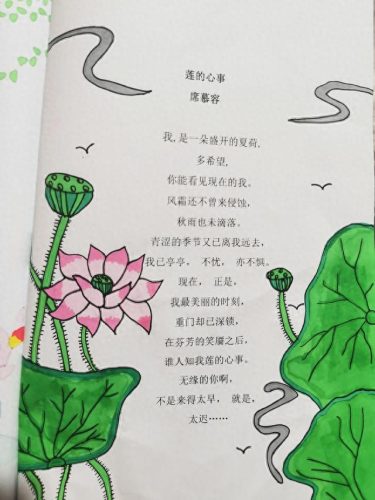 莲的心事
席慕容
我,是一朵盛开的夏荷,
多希望,
你能看见现在的我。
风霜还不曾来侵蚀,
秋雨也未滴落。
青涩的季节又已离我远去,
我已亭亭， 不忧， 亦不惧。
现在， 正是，
我最美丽的时刻,
重门却已深锁,
在芬芳的笑靥之后,
谁人知我莲的心事。
无缘的你啊,
不是来得太早， 就是，
太迟……